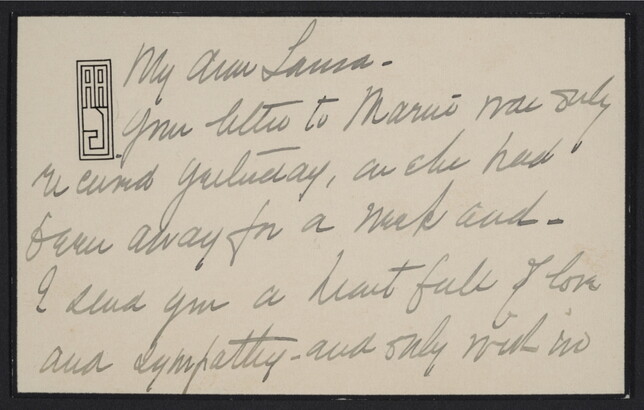 My dear Laura -
Your letter to Marie was only
received yesterday, as she had
been away for a week and -
I send you a heart full of love
and sympathy - and only wish we